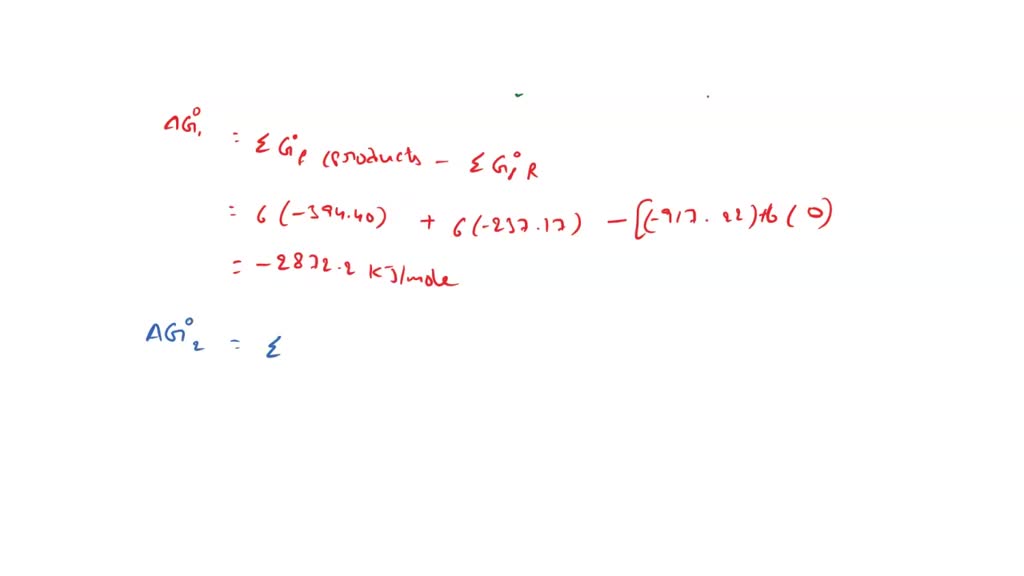 ΔG₁° = ΣG°f (products - ΣG°f R
= 6(-394.40) + 6(-237.17) - [(-917.22)+6(0)
= -2872.2 KJ/mole
ΔG°₂ = Σ